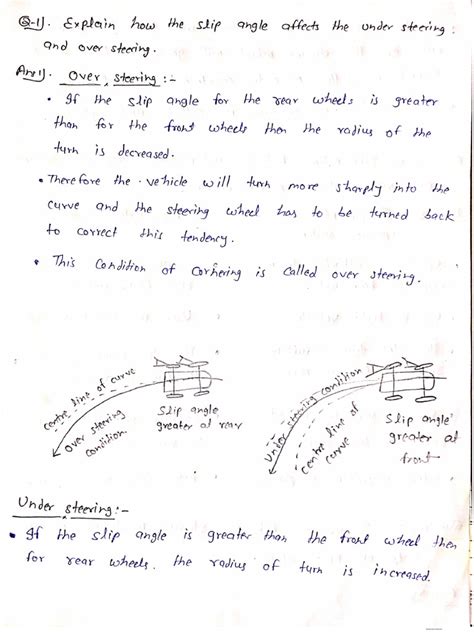 Q-1). Explain how the slip angle affects the under steering
and over steering.
Ans1). Over steering :-
• If the slip angle for the rear wheels is greater
than for the front wheels then the radius of the
turn is decreased.
• Therefore the vehicle will turn more sharply into the
curve and the steering wheel has to be turned back
to correct this tendency.
• This Condition of Cornering is called over steering.
centre line of curve
Over steering
condition.
Slip angle
greater at rear
Under steering condition
centre line of
curve
Slip angle
greater at
front
Under steering:-
• If the slip angle is greater than the front wheel then
for rear wheels. the radius of turn is increased.